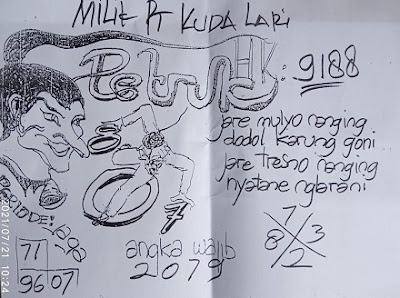 MILIK PT KUDA LARI
Petruk HK: 9188
jare mulyo nanging
dodol karung goni
jare tresno nanging
nyatane nglarani
71
96 07
angka wajib
2079
7
8 3
2
0 7
2021/07/21 10:24